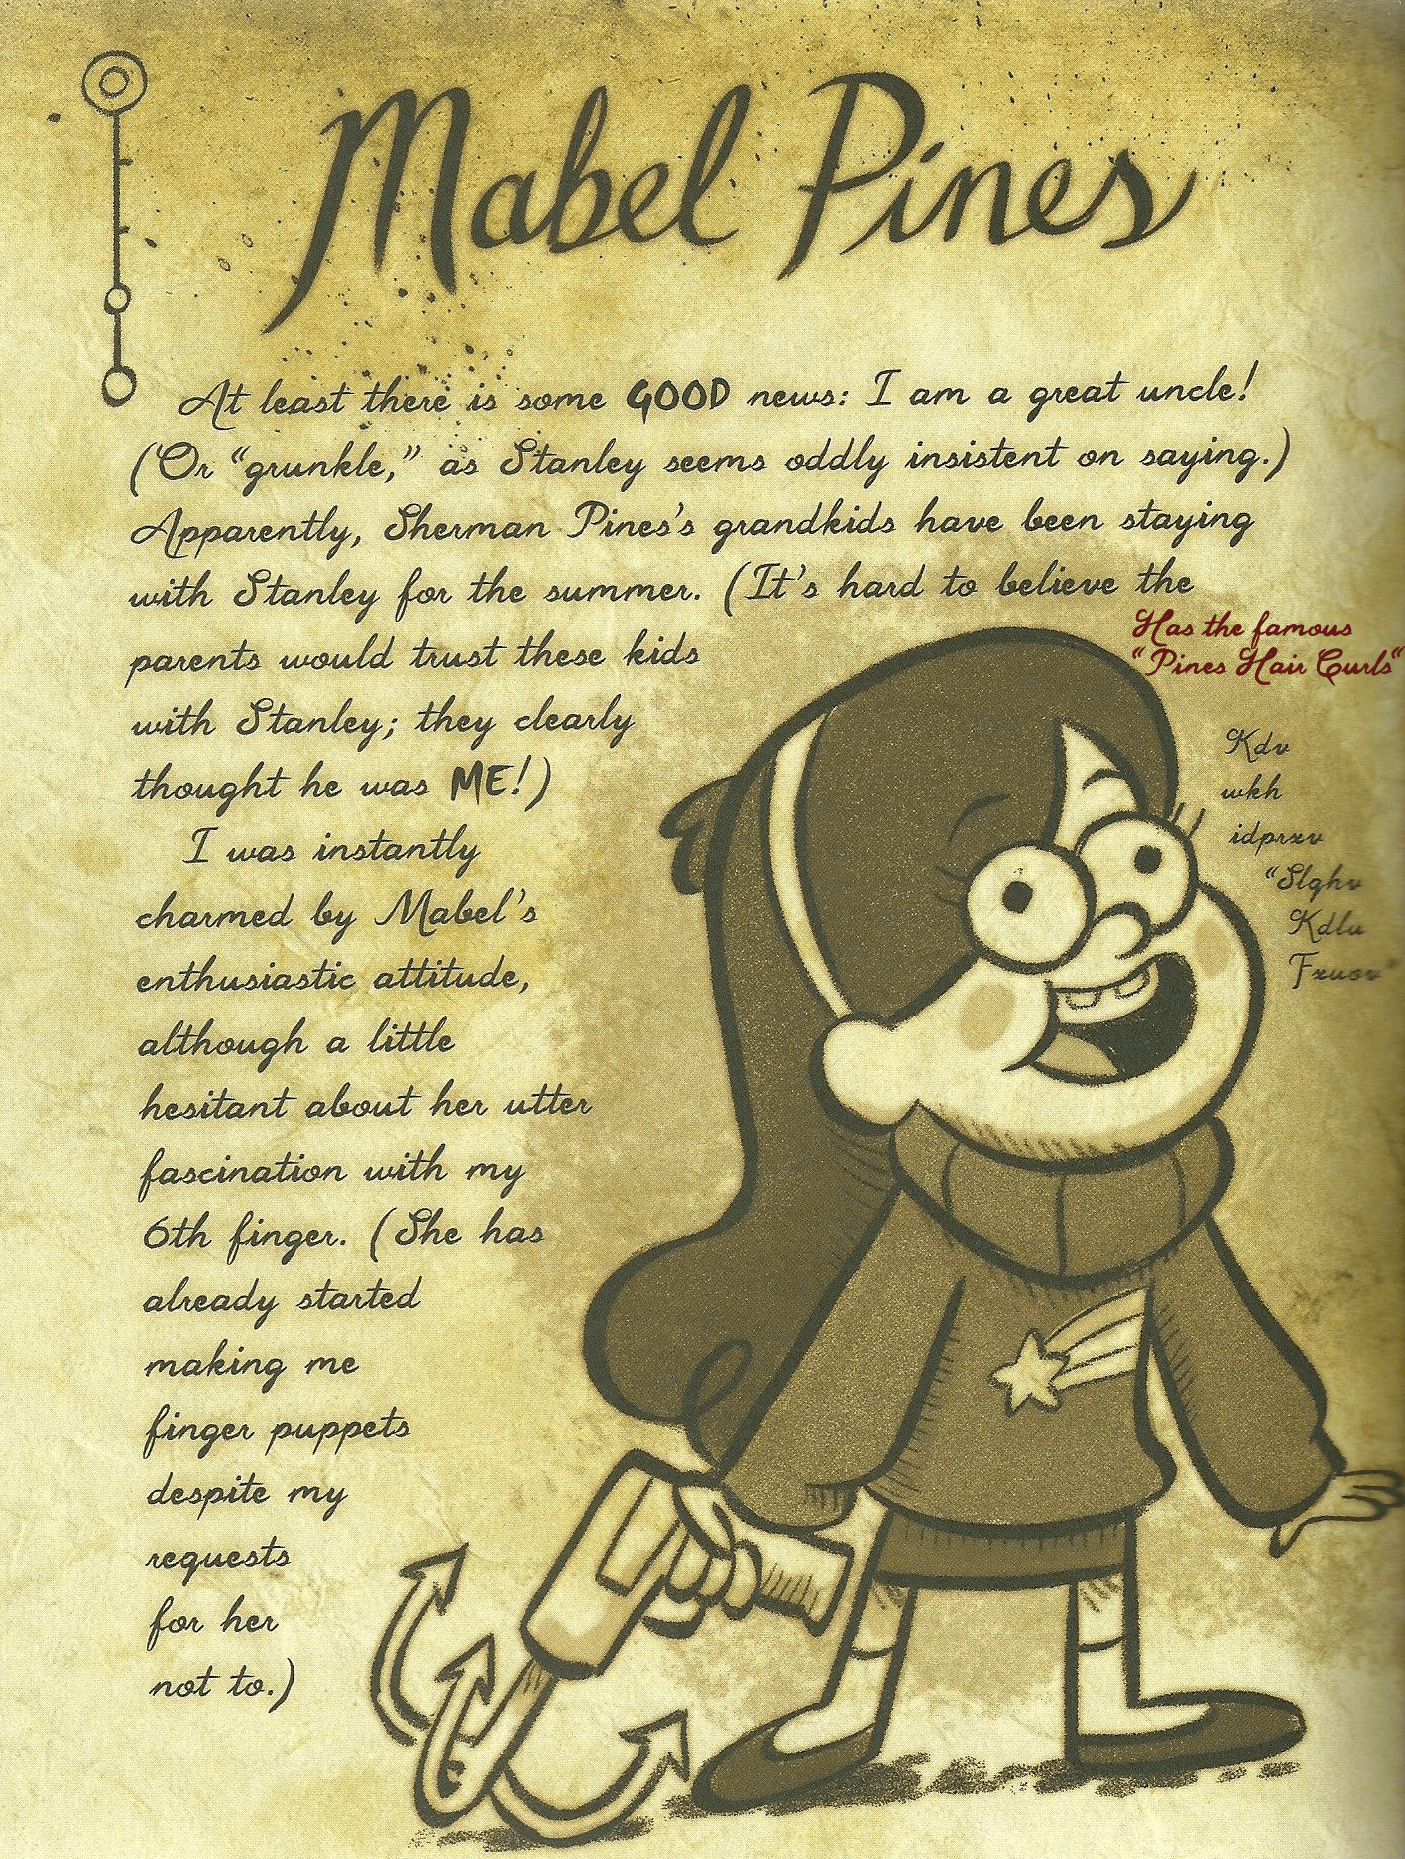 Mabel Pines
At least there is some GOOD news: I am a great uncle!
(Or “grunkle,” as Stanley seems oddly insistent on saying.)
Apparently, Sherman Pines’s grandkids have been staying
with Stanley for the summer. (It’s hard to believe the
parents would trust these kids
with Stanley; they clearly
thought he was ME!)
I was instantly
charmed by Mabel’s
enthusiastic attitude,
although a little
hesitant about her utter
fascination with my
6th finger. (She has
already started
making me
finger puppets
despite my
requests
for her
not to.)
Has the famous
“Pines Hair Curls“
Kdv
wkh
idprxv
“Slqhv
Kdlu
Fxuov”